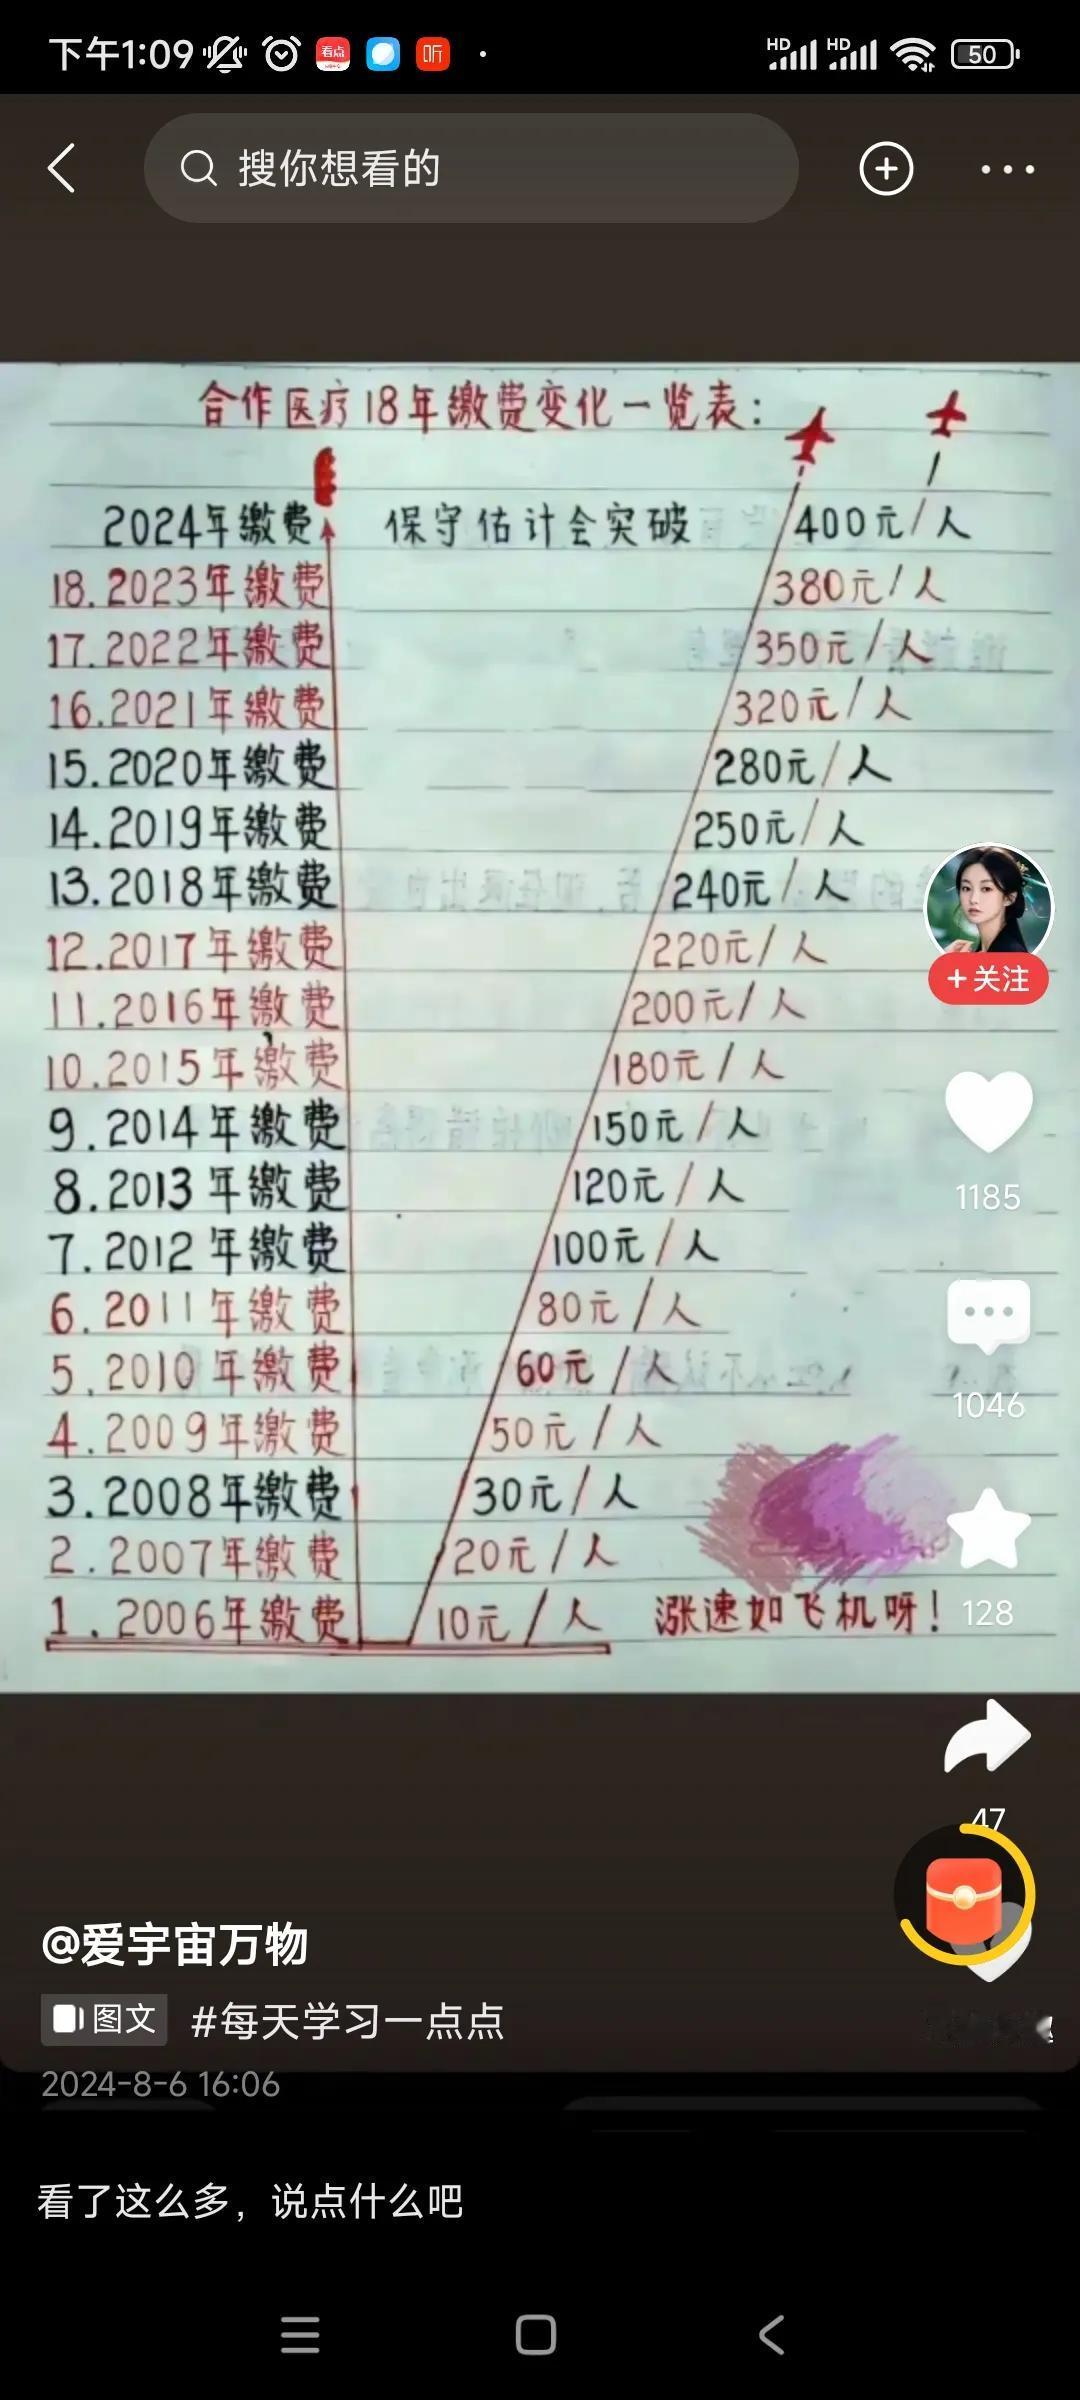 下午1:09
看点
听
HD
HD
50
搜你想看的
合作医疗18年缴费变化一览表:
2024年缴费 保守估计会突破 400元/人
18.2023年缴费 380元/人
17.2022年缴费 350元/人
16.2021年缴费 320元/人
15.2020年缴费 280元/人
14.2019年缴费 250元/人
13.2018年缴费 240元/人
12.2017年缴费 220元/人
11.2016年缴费 200元/人
10.2015年缴费 180元/人
9.2014年缴费 150元/人
8.2013年缴费 120元/人
7.2012年缴费 100元/人
6.2011年缴费 80元/人
5.2010年缴费 60元/人
4.2009年缴费 50元/人
3.2008年缴费 30元/人
2.2007年缴费 20元/人
1.2006年缴费 10元/人 涨速如飞机呀!
+关注
1185
1046
128
47
@爱宇宙万物
图文 #每天学习一点点
2024-8-6 16:06
看了这么多，说点什么吧